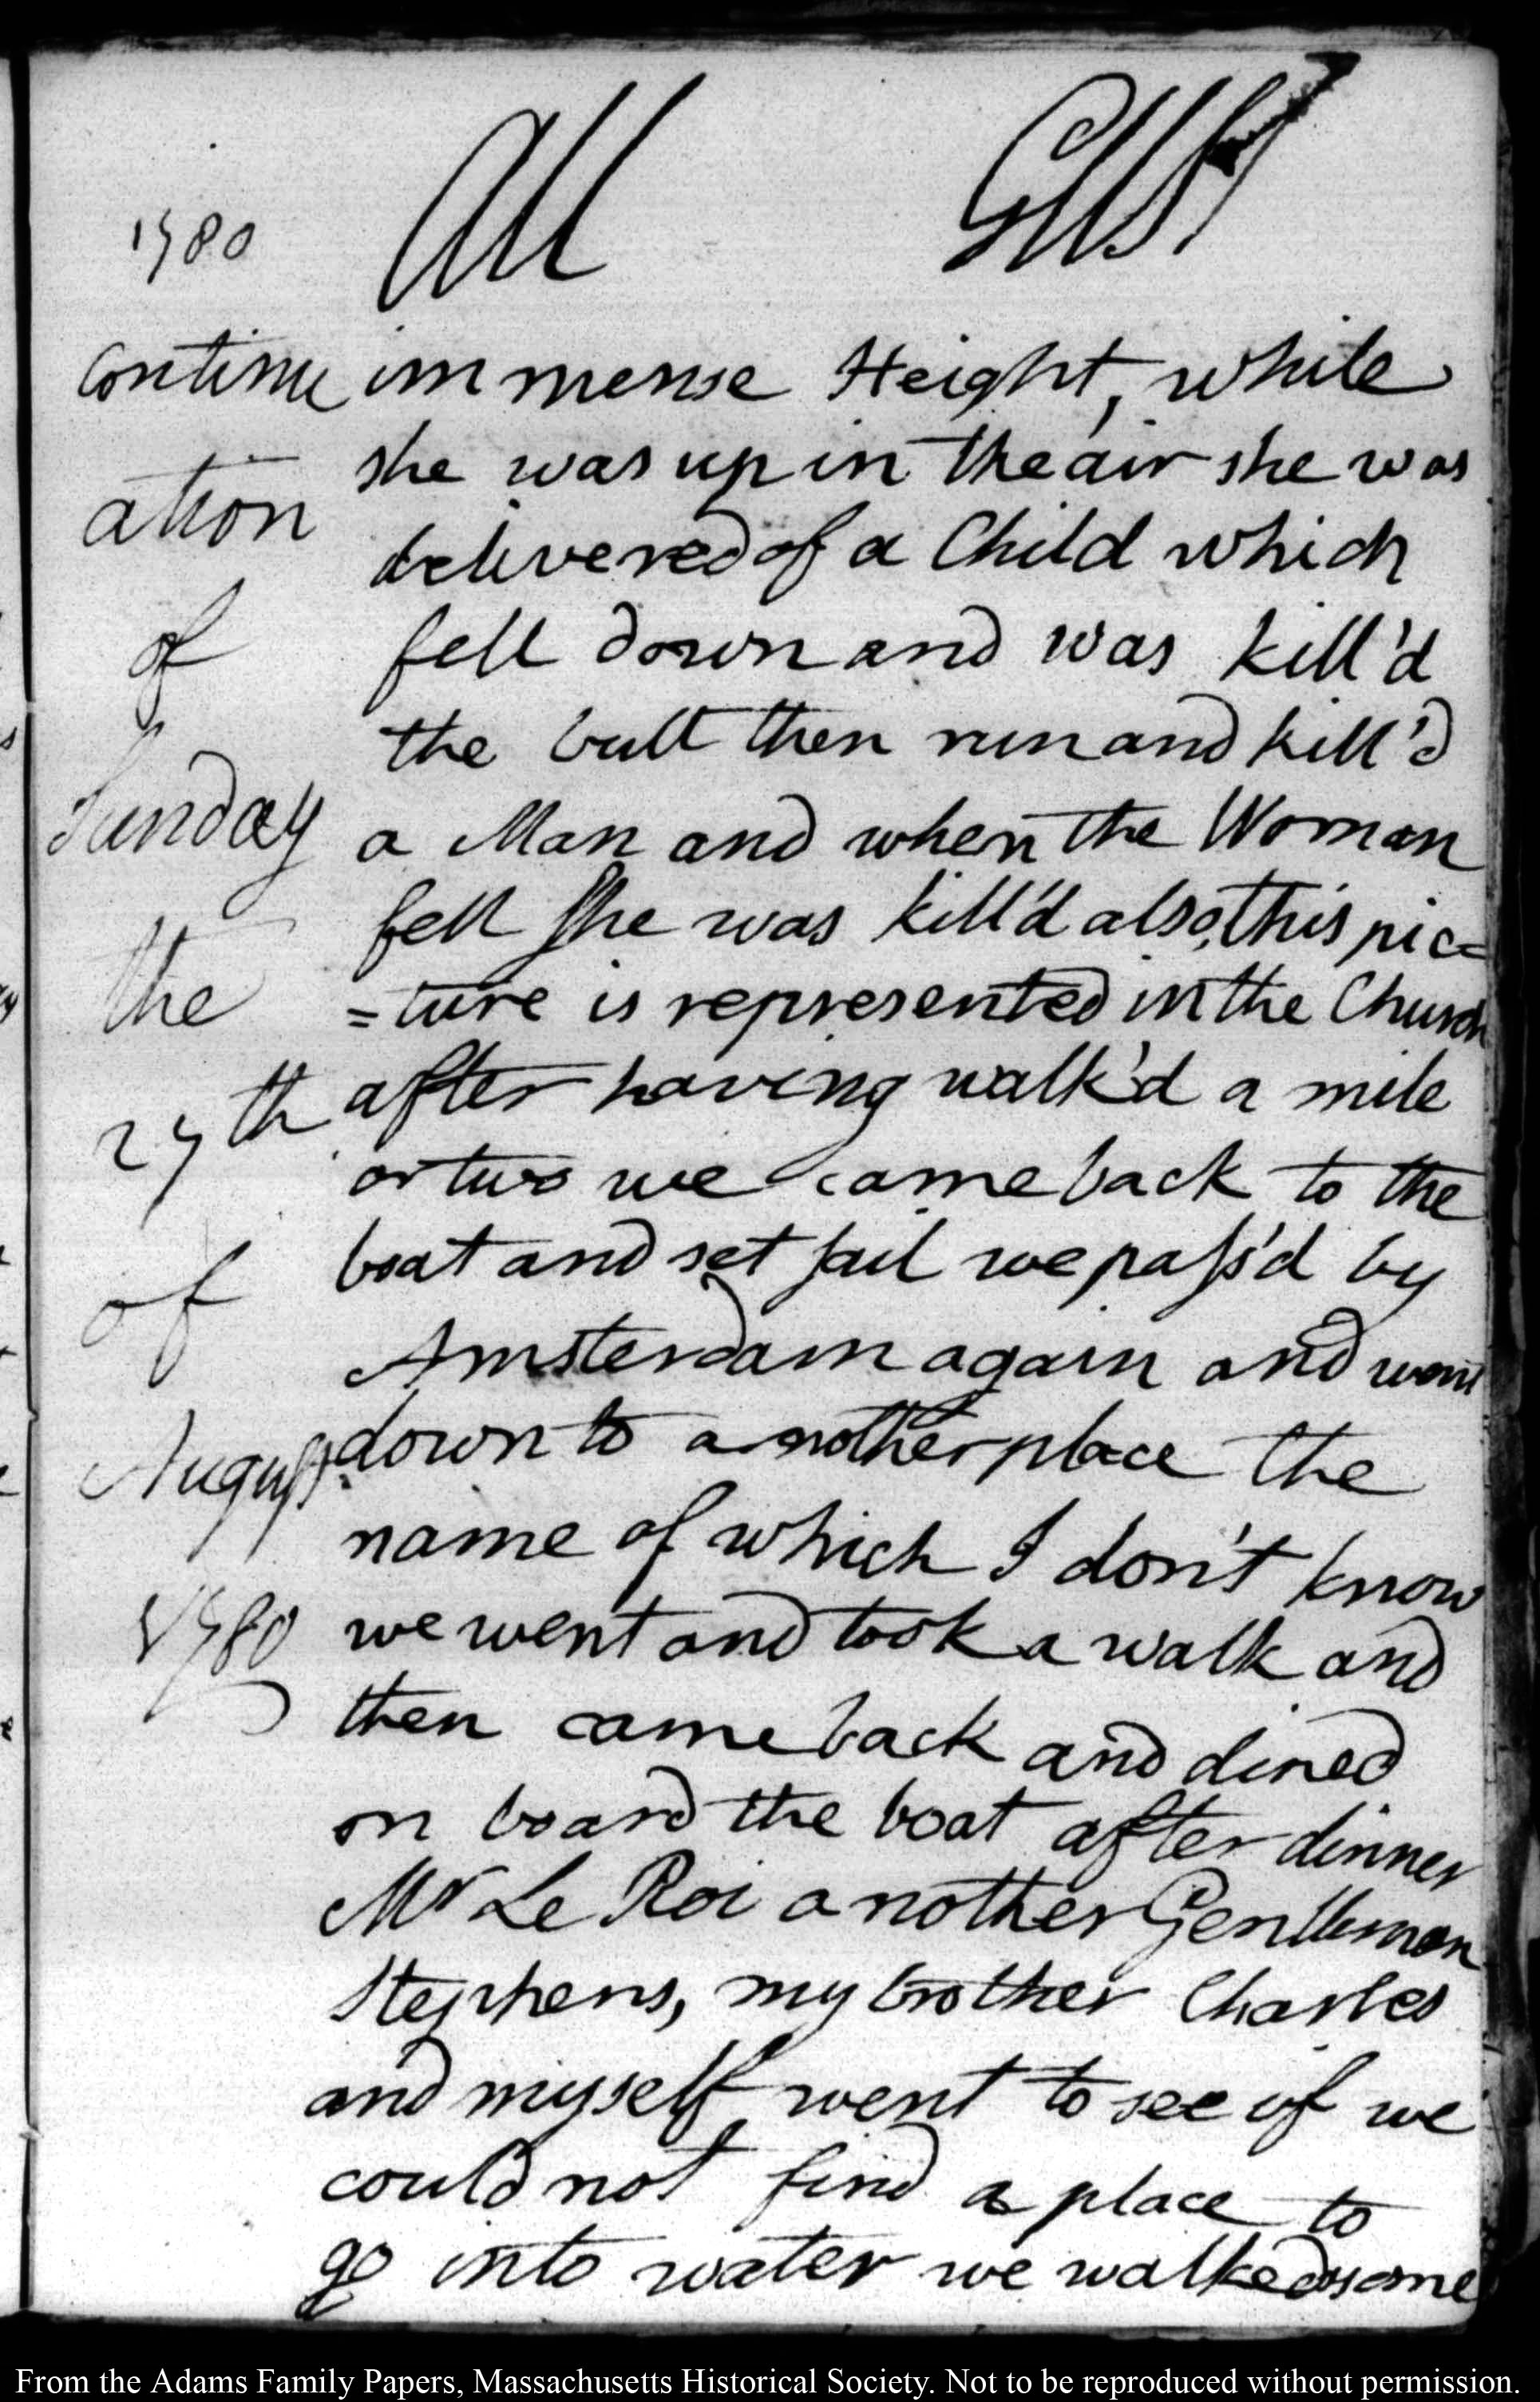 1780
Au
Gust
Continu
ation
of
Sunday
the
27th
of
August
1780
immense Height, while
she was up in the air she was
delivered of a Child which
fell down and was kill'd
the bull then run and kill'd
a Man and when the Woman
fell She was kill'd also, this pic=
=ture is represented in the Church
after having walk'd a mile
or two we came back to the
boat and set sail we pass'd by
Amsterdam again and went
down to another place the
name of which I don't know
we went and took a walk and
then came back and dined
on board the boat after dinner
Mr Le Roi another Gentleman
Stephens, my brother Charles
and myself went to see if we
could not find a place to
go into water we walked some
From the Adams Family Papers, Massachusetts Historical Society. Not to be reproduced without permission.